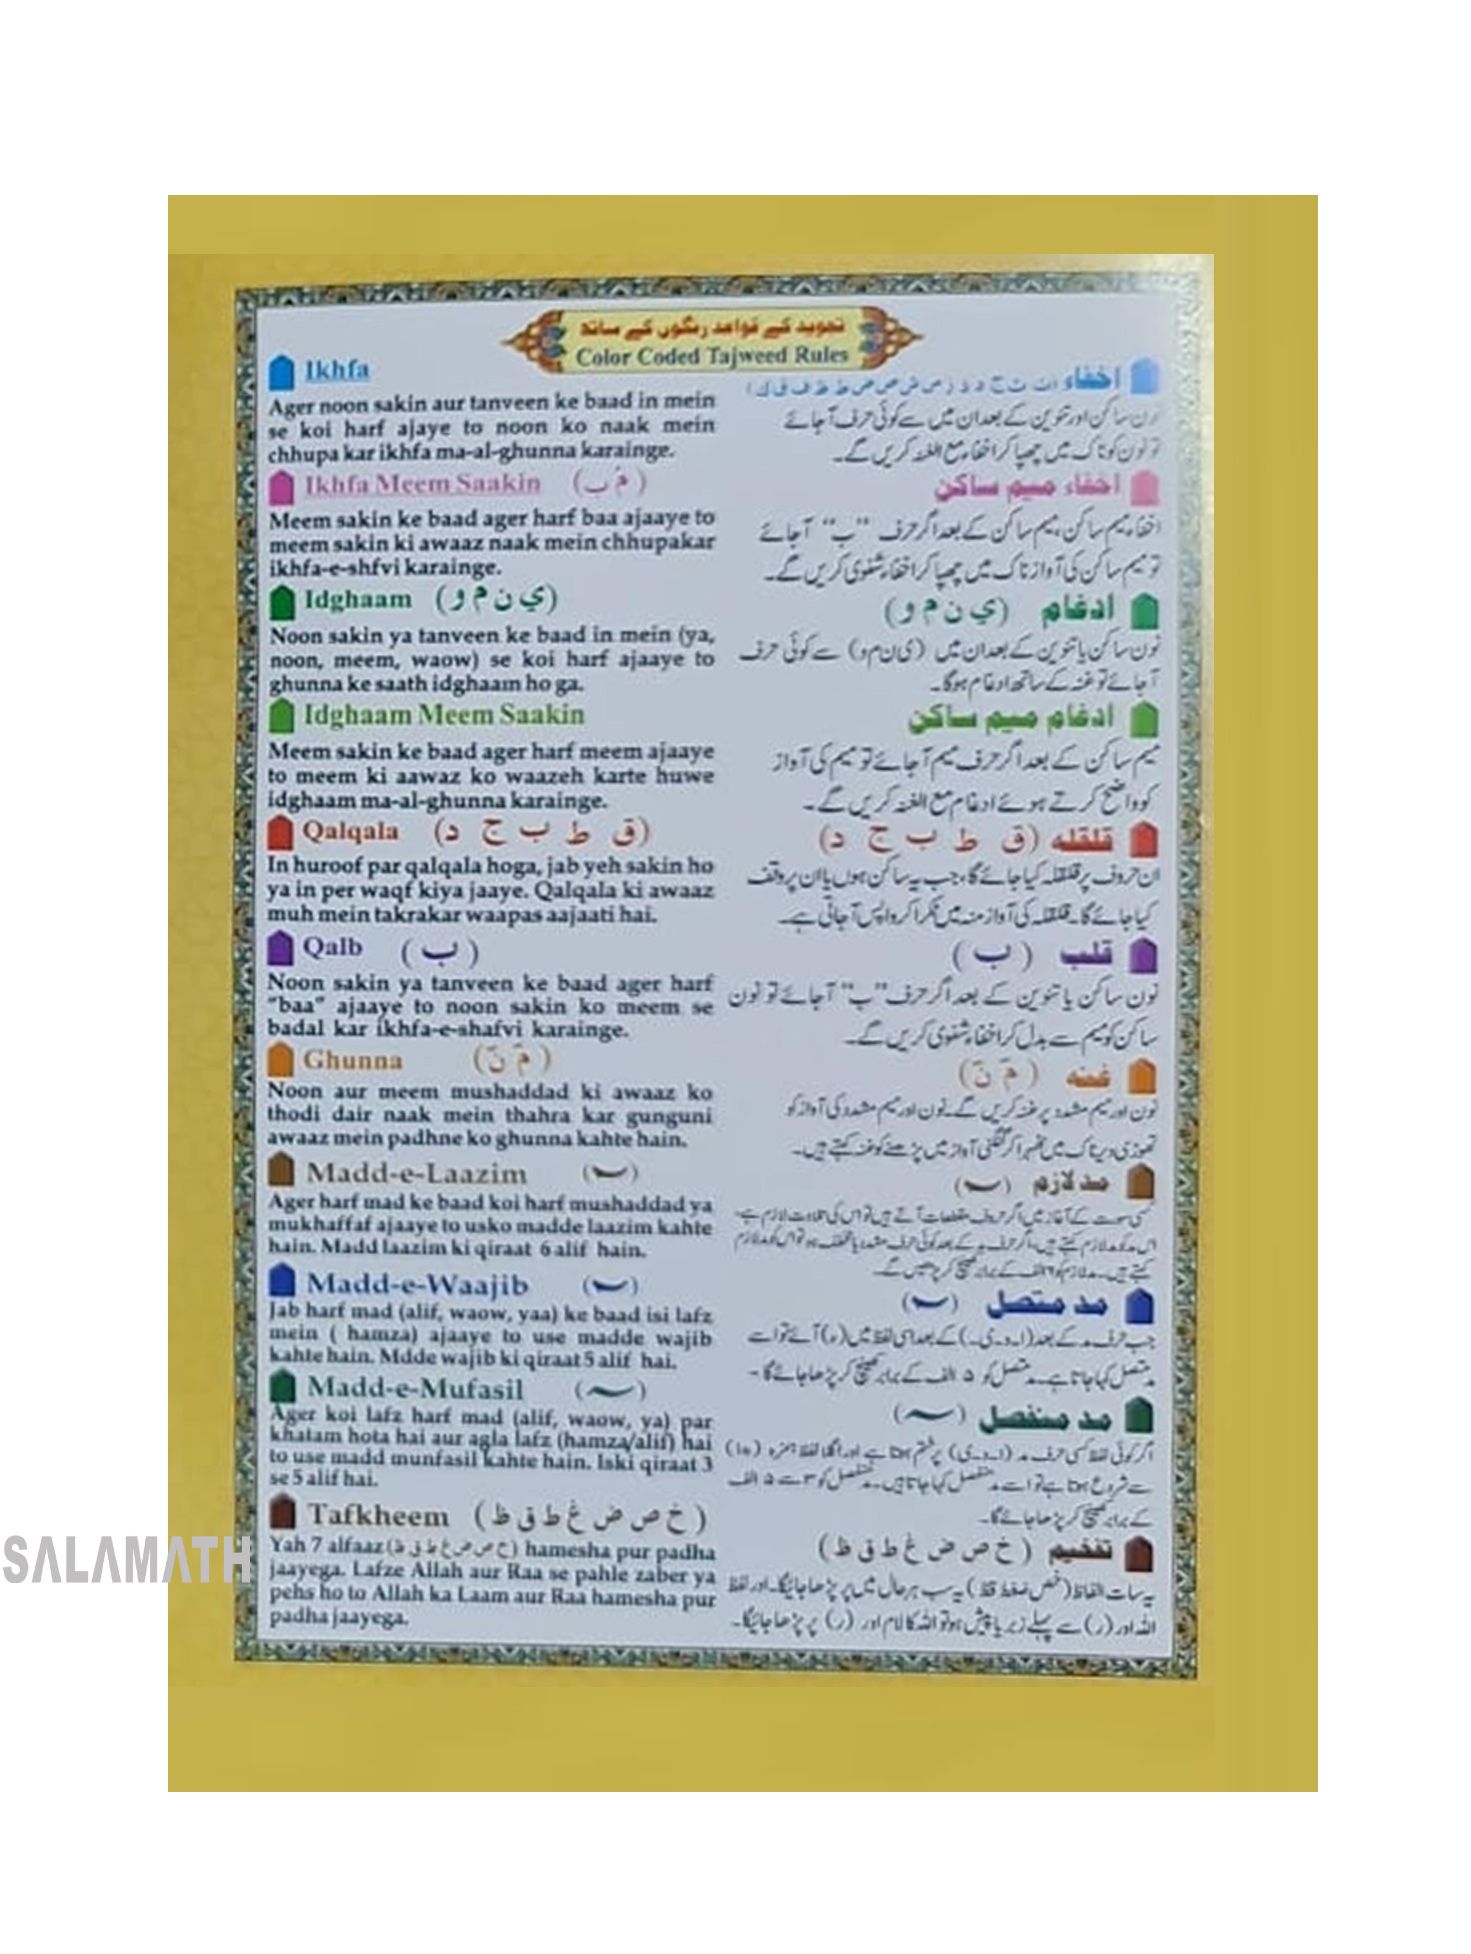 تجوید کے قواعد رنگوں کے ساتھ
Color Coded Tajweed Rules
Ikhfa
Ager noon sakin aur tanveen ke baad in mein
se koi harf ajaye to noon ko naak mein
chhupa kar ikhfa ma-al-ghunna karainge.
Ikhfa Meem Saakin (مْ بِ)
Meem sakin ke baad ager harf baa ajaaye to
meem sakin ki awaaz naak mein chhupakar
ikhfa-e-shfvi karainge.
Idghaam (ي ن م و)
Noon sakin ya tanveen ke baad in mein (ya,
noon, meem, waow) se koi harf ajaaye to
ghunna ke saath idghaam ho ga.
Idghaam Meem Saakin
Meem sakin ke baad ager harf meem ajaaye
to meem ki aawaz ko waazeh karte huwe
idghaam ma-al-ghunna karainge.
Qalqala (ق ط ب ج د)
In huroof par qalqala hoga, jab yeh sakin ho
ya in per waqf kiya jaaye. Qalqala ki awaaz
muh mein takrakar waapas aajaati hai.
Qalb (ب)
Noon sakin ya tanveen ke baad ager harf
"baa" ajaaye to noon sakin ko meem se
badal kar ikhfa-e-shafvi karainge.
Ghunna (مّ نّ)
Noon aur meem mushaddad ki awaaz ko
thodi dair naak mein thahra kar gunguni
awaaz mein padhne ko ghunna kahte hain.
Madd-e-Laazim (~)
Ager harf mad ke baad koi harf mushaddad ya
mukhaffaf ajaaye to usko madde laazim kahte
hain. Madd laazim ki qiraat 6 alif hain.
Madd-e-Waajib (~)
Jab harf mad (alif, waow, yaa) ke baad isi lafz
mein ( hamza) ajaaye to use madde wajib
kahte hain. Mdde wajib ki qiraat 5 alif hai.
Madd-e-Mufasil (~)
Ager koi lafz harf mad (alif, waow, ya) par
khatam hota hai aur agla lafz (hamza/alif) hai
to use madd munfasil kahte hain. Iski qiraat 3
se 5 alif hai.
Tafkheem (خ ص ض غ ط ق ظ)
Yah 7 alfaaz (خ ص ض غ ط ق ظ) hamesha pur padha
jaayega. Lafze Allah aur Raa se pahle zaber ya
pehs ho to Allah ka Laam aur Raa hamesha pur
padha jaayega.
اخفاء
نون ساکن اور تنوین کے بعد ان میں سے کوئی حرف آجائے
تو نون کو ناک میں چھپا کر اخفاء مع الغنہ کریں گے۔
اخفاء میم ساکن
اخفاء میم ساکن، میم ساکن کے بعد اگر حرف "ب" آجائے
تو میم ساکن کی آواز ناک میں چھپا کر اخفاء شفوی کریں گے۔
ادغام (ي ن م و)
نون ساکن یا تنوین کے بعد ان میں (ی ن م و) سے کوئی حرف
آجائے تو غنہ کے ساتھ ادغام ہوگا۔
ادغام میم ساکن
میم ساکن کے بعد اگر حرف میم آجائے تو میم کی آواز
کو واضح کرتے ہوئے ادغام مع الغنہ کریں گے۔
قلقلہ (ق ط ب ج د)
ان حروف پر قلقلہ کیا جائے گا، جب یہ ساکن ہوں یا ان پر وقف
کیا جائے گا۔ قلقلہ کی آواز منہ میں ٹکرا کر واپس آجاتی ہے۔
قلب (ب)
نون ساکن یا تنوین کے بعد اگر حرف "ب" آجائے تو نون
ساکن کو میم سے بدل کر اخفاء شفوی کریں گے۔
غنہ (مّ نّ)
نون اور میم مشدد پر غنہ کریں گے۔ نون اور میم مشدد کی آواز کو
تھوڑی دیر ناک میں ٹھہرا کر گنگنی آواز میں پڑھنے کو غنہ کہتے ہیں۔
مد لازم (~)
کسی سورت کے آغاز میں اگر حروف مقطعات آتے ہیں تو اس کی تلاوت لازم ہے۔
اس مد کو مد لازم کہتے ہیں۔ اگر حرف مد کے بعد کوئی حرف مشدد یا مخفف ہو تو اس کو مد لازم
کہتے ہیں۔ مد لازم کو ۶ الف کے برابر کھینچ کر پڑھیں گے۔
مد متصل (~)
جب حرف مد کے بعد (ا۔و۔ی۔) کے بعد اسی لفظ میں (ء) آئے تو اسے
مد متصل کہا جاتا ہے۔ مد متصل کو ۵ الف کے برابر کھینچ کر پڑھا جائے گا۔
مد منفصل (~)
اگر کوئی لفظ کسی حرف مد (ا۔و۔ی) پر ختم ہوتا ہے اور اگلا لفظ ہمزہ (ء ا)
سے شروع ہوتا ہے تو اسے مد منفصل کہا جاتا ہیں۔ مد منفصل کو ۳ سے ۵ الف
کے برابر کھینچ کر پڑھا جائے گا۔
تفخیم (خ ص ض غ ط ق ظ)
یہ سات الفاظ (خص ضغط قظ) یہ سب ہر حال میں پر پڑھا جائیگا۔ اور لفظ
اللہ اور (ر) سے پہلے زبر یا پیش ہو تو اللہ کا لام اور (ر) پر پڑھا جائیگا۔
SALAMATH